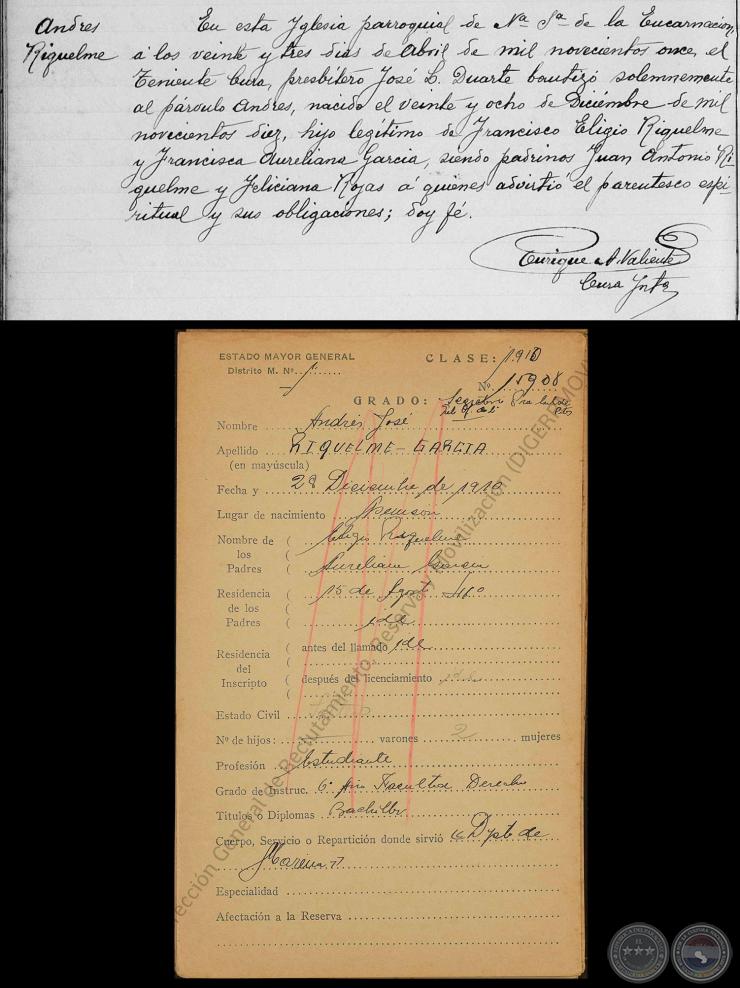 Andres
Riquelme
En esta Yglesia parroquial de Nª Sª de la Encarnacion,
á los veinte y tres dias de Abril de mil novecientos once, el
Teniente Cura, presbitero José L. Duarte bautizó solemnemente
al párvulo Andres, nacido el veinte y ocho de Diciembre de mil
novecientos diez, hijo legítimo de Francisco Eligio Riquelme
y Francisca Aureliana Garcia, siendo padrinos Juan Antonio Ri-
quelme y Feliciana Rojas á quienes advirtió el parentesco espi-
ritual y sus obligaciones; doy fé.
Enrique A. Valiente
Cura Ynto
ESTADO MAYOR GENERAL
CLASE: 1.910
Distrito M. Nº 1º
Nº 15908
GRADO: Secretario
Nombre Andrés José
Apellido RIQUELME-GARCIA
(en mayúscula)
Fecha y 28 Diciembre de 1910
Lugar de nacimiento Asuncion
Nombre de ( Eligio Riquelme
los (
Padres ( Aureliana Garcia
Residencia ( 15 de Agosto
de los (
Padres ( ide
Residencia ( antes del llamado ide
del (
Inscripto ( después del licenciamiento ide
(
Estado Civil
Nº de hijos: varones 2 mujeres
Profesión Estudiante
Grado de Instruc. 6º Año Facultad Derecho
Titulos o Diplomas Bachiller
Cuerpo, Servicio o Repartición donde sirvió Dpto de
Marina
Especialidad
Afectación a la Reserva
Dirección General de Reclutamiento, Reserva y Movilización (DIGERRMOV)